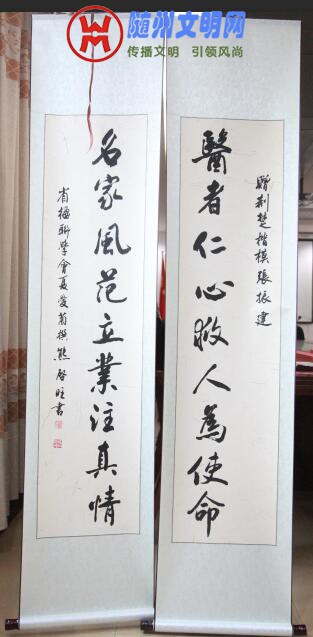 随州文明网
传播文明 引领风尚
贈荆楚楷模張振建
醫者仁心救人為使命
名家風范立業注真情
省楹聯學會夏愛菊撰熊啓旺书